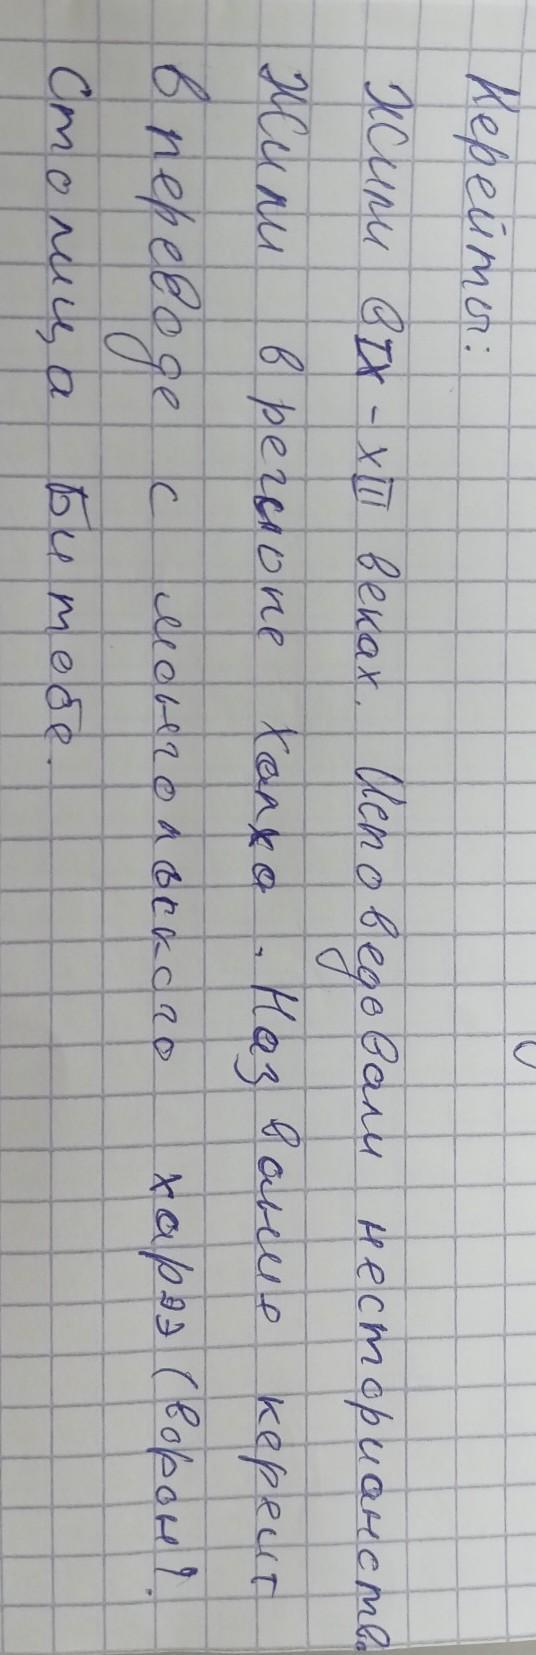 Керейты:
Жили в IX - XIII веках. Исповедовали несторианство
Жили в регионе Халха. Название кереит
в переводе с моньгольского харээ (ворон).
Столица Битобе.